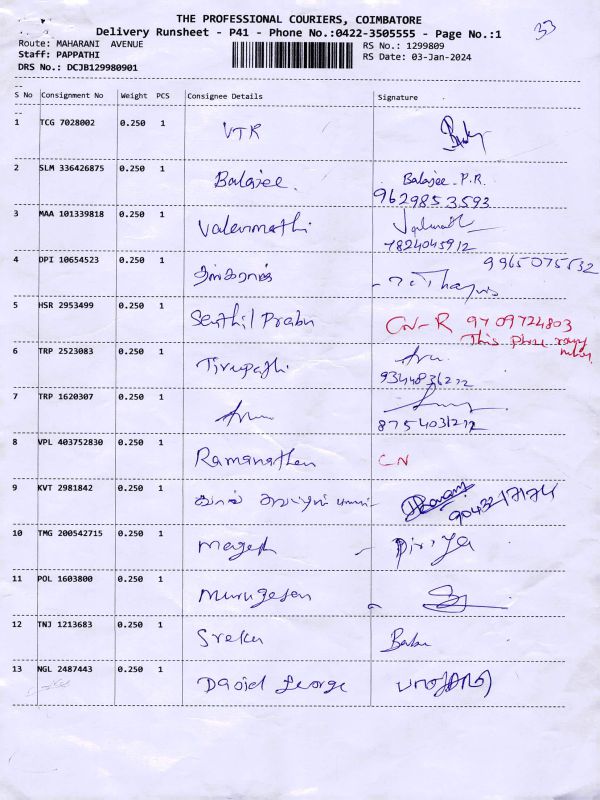 THE PROFESSIONAL COURIERS, COIMBATORE
Delivery Runsheet - P41 - Phone No.:0422-3505555 - Page No.:1
33
Route: MAHARANI AVENUE
RS No.: 1299809
Staff: PAPPATHI
RS Date: 03-Jan-2024
DRS No.: DCJB129980901
S No Consignment No Weight PCS Consignee Details Signature
1 TCG 7028002 0.250 1 VTR
2 SLM 336426875 0.250 1 Balajee. Balajee.P.R.
9629853593
3 MAA 101339818 0.250 1 Valarmathi
7824045912
4 DPI 10654523 0.250 1
5 HSR 2953499 0.250 1 Senthil Prabu CN-R 9709724803
This phone
6 TRP 2523083 0.250 1 Tirupathi
9344836212
7 TRP 1620307 0.250 1
8754031212
8 VPL 403752830 0.250 1 Ramanathan CN
9 KVT 2981842 0.250 1
10 TMG 200542715 0.250 1 Magesh Piriya
11 POL 1603800 0.250 1 Murugesan
12 TNJ 1213683 0.250 1 Sreku Babu
13 NGL 2487443 0.250 1 David George